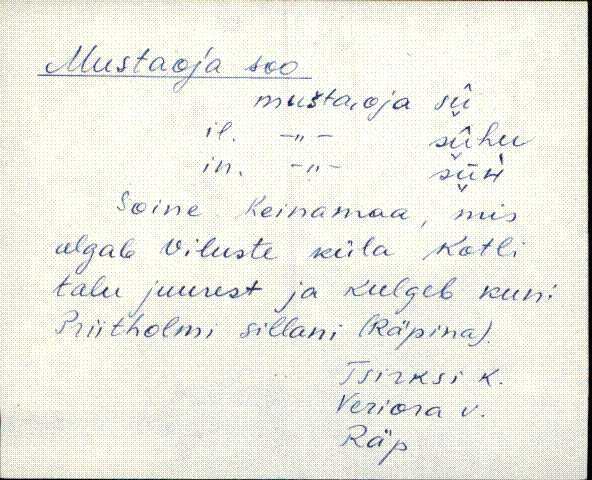 Mustaoja soo
mušta,oja sǖ
il. -„- sǖhu
in. -„- sǖń
Soine heinamaa, mis
algab Viluste küla Kotli
talu juurest ja kulgeb kuni
Priitholmi sillani (Räpina).
Tsirksi k.
Veriora v.
Räp